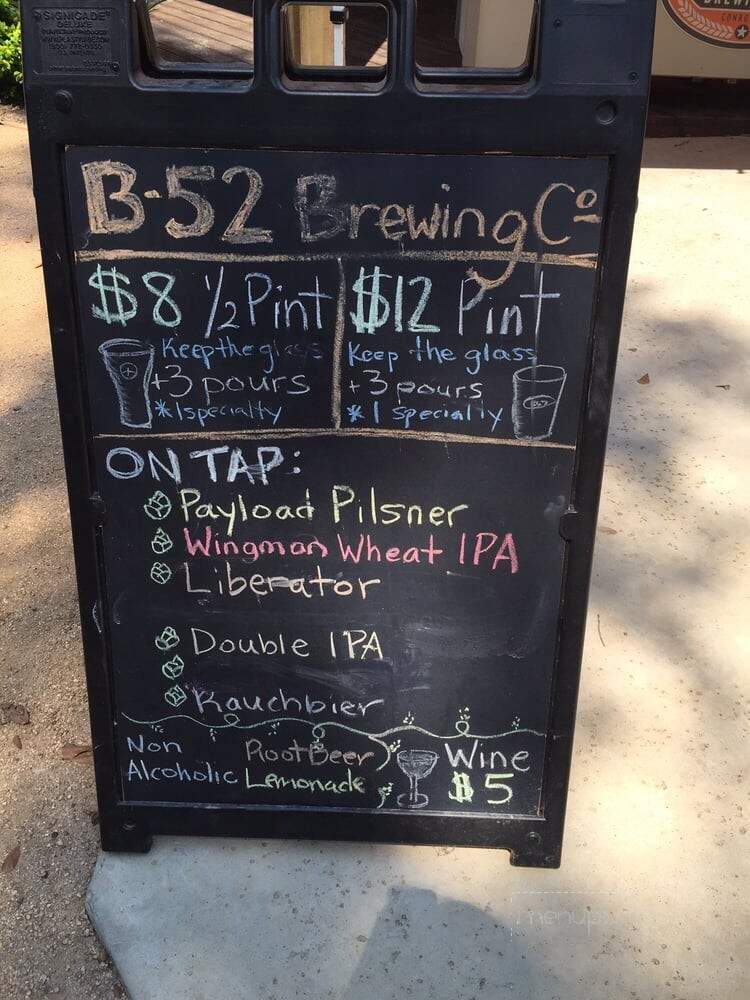 SIGNICADE
DELUXE
B-52 Brewing Co
$8 1/2 Pint
Keep the glass
+3 pours
*1 specialty
$12 Pint
Keep the glass
+3 pours
*1 specialty
ON TAP:
Payload Pilsner
Wingman Wheat IPA
Liberator
Double IPA
Rauchbier
Non
Alcoholic
Root Beer
Lemonade
Wine
$5